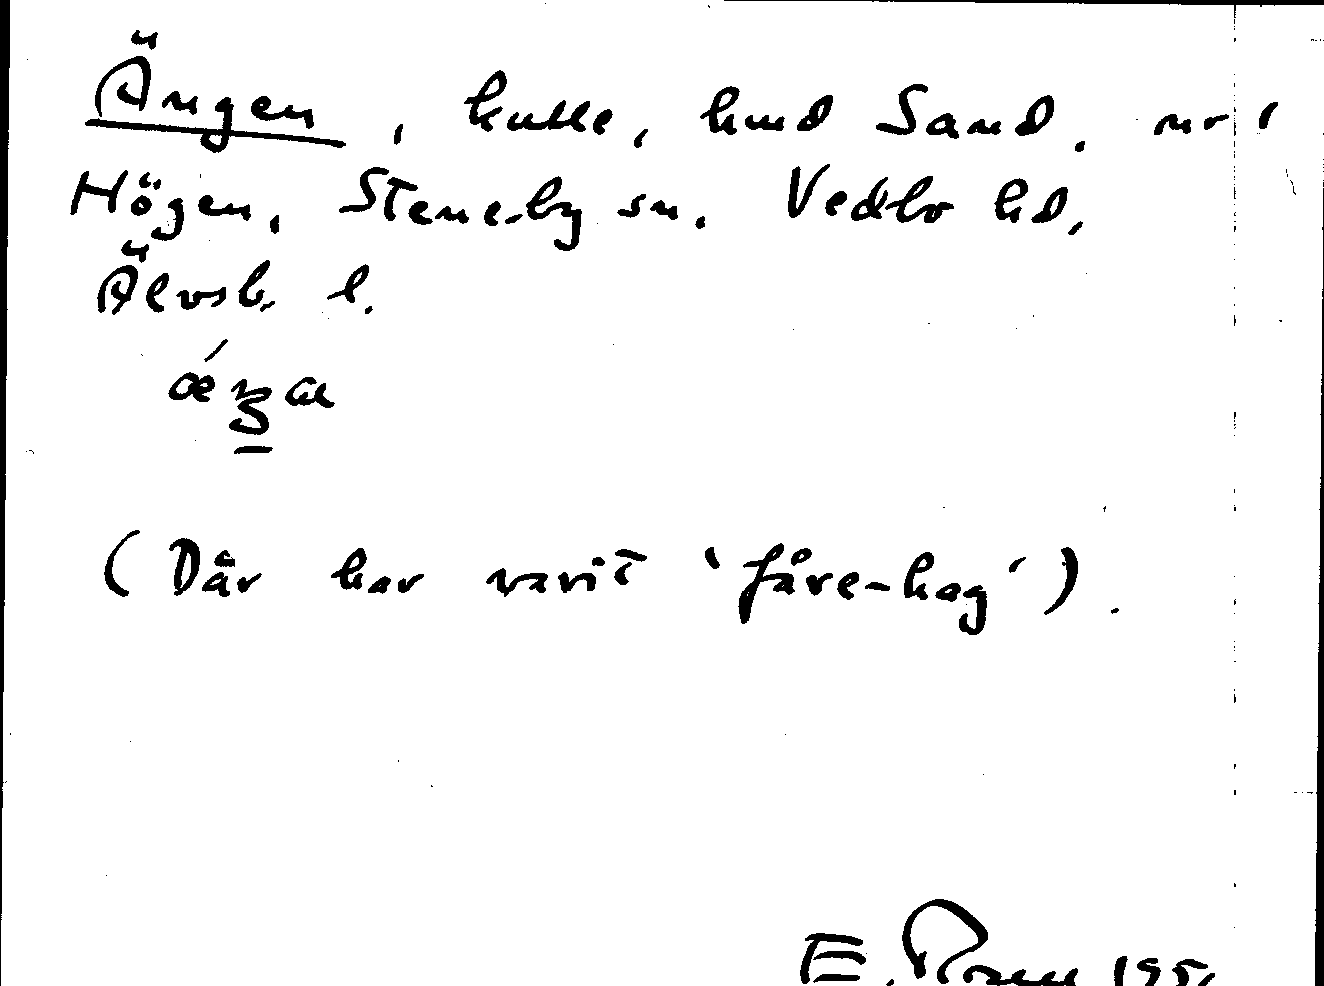 Ängen, kulle, hmd Sand, nr 1
Högen, Steneby sn. Vedbo hd,
Älvsb. l.
(Där har varit 'fåre-hag').
E.